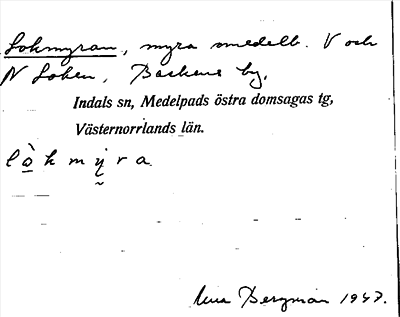 Lokmyran, myra omedelb. V och
N Loken, Backens by,
Indals sn, Medelpads östra domsagas tg,
Västernorrlands län.
lò̠kmy̰ra
Bergman 1937.